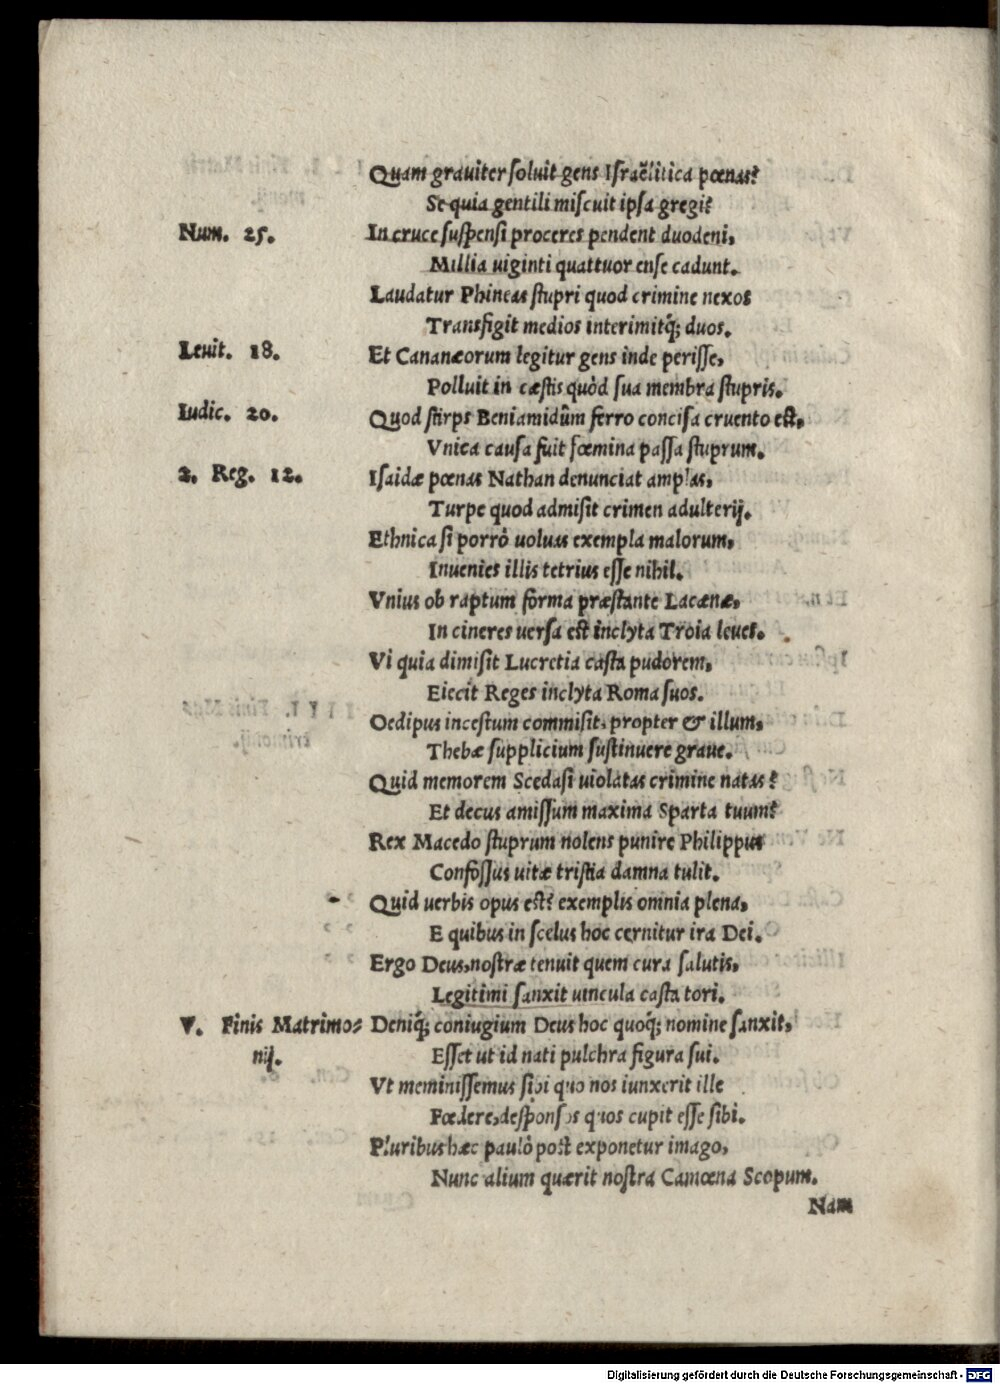 Quam grauiter soluit gens Israëlitica pœnas?
Se quia gentili miscuit ipsa gregi?
Num. 25. In cruce suspensi proceres pendent duodeni,
Millia uiginti quattuor ense cadunt.
Laudatur Phineas stupri quod crimine nexos
Transfigit medios interimitq́; duos.
Leuit. 18. Et Cananæorum legitur gens inde perisse,
Polluit in cæstis quòd sua membra stupris.
Iudic. 20. Quod stirps Beniamidûm ferro concisa cruento est,
Vnica causa fuit fœmina passa stuprum.
2. Reg. 12. Isaidæ pœnas Nathan denunciat amplas,
Turpe quod admisit crimen adulterij.
Ethnica si porrò uoluas exempla malorum,
Inuenies illis tetrius esse nihil.
Vnius ob raptum forma præstante Lacænæ,
In cineres uersa est inclyta Troia leues.
Vi quia dimisit Lucretia casta pudorem,
Eiecit Reges inclyta Roma suos.
Oedipus incestum commisit, propter & illum,
Thebæ supplicium sustinuere graue.
Quid memorem Scedasi uiolatas crimine natas?
Et decus amissum maxima Sparta tuum?
Rex Macedo stuprum nolens punire Philippus
Confossus uitæ tristia damna tulit.
Quid uerbis opus est? exemplis omnia plena,
E quibus in scelus hoc cernitur ira Dei.
Ergo Deus, nostræ tenuit quem cura salutis,
Legitimi sanxit uincula casta tori.
V. Finis Matrimo= Deniq́; coniugium Deus hoc quoq́; nomine sanxit,
nij. Esset ut id nati pulchra figura sui.
Vt meminissemus sibi quo nos iunxerit ille
Fœdere, desponsos quos cupit esse sibi.
Pluribus hæc paulò post exponetur imago,
Nunc alium quærit nostra Camœna Scopum.
Nam
Digitalisierung gefördert durch die Deutsche Forschungsgemeinschaft - DFG